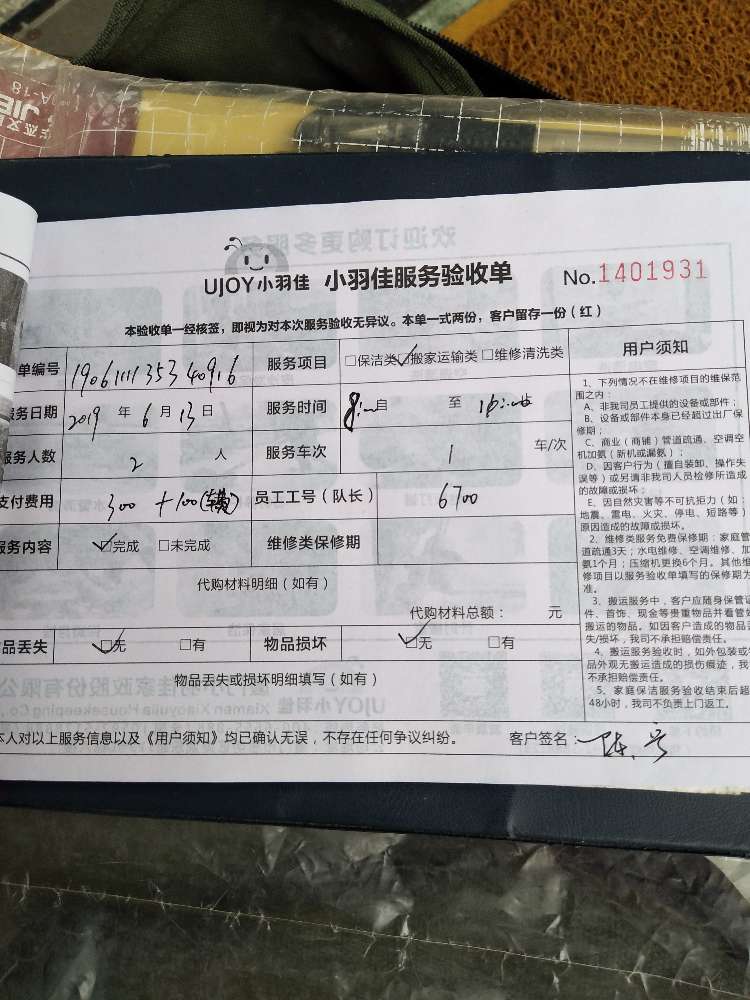 UJOY小羽佳 小羽佳服务验收单 No.1401931
本验收单一经核签，即视为对本次服务验收无异议。本单一式两份，客户留存一份（红）
单编号 19061111353 40916 服务项目 □保洁类 ☑搬家运输类 □维修清洗类
服务日期 2019 年 6 月 13 日 服务时间 自 至
服务人数 2 人 服务车次 1 车/次
支付费用 300 +100 员工工号（队长） 6700
服务内容 ☑完成 □未完成 维修类保修期
代购材料明细（如有）
代购材料总额： 元
品丢失 ☑无 □有 物品损坏 ☑无 □有
物品丢失或损坏明细填写（如有）
本人对以上服务信息以及《用户须知》均已确认无误，不存在任何争议纠纷。 客户签名：
用户须知
1、下列情况不在维修项目的维保范
围之内：
A、非我司员工提供的设备或部件；
B、设备或部件本身已经超过出厂保
修期；
C、商业（商铺）管道疏通、空调空
机加氨（新机或漏氨）；
D、因客户行为（擅自装卸、操作失
误等）或另请非我司人员检修所造成
的故障或损坏；
E、因自然灾害等不可抗拒力（如：
地震、雷电、火灾、停电、短路等）
原因造成的故障或损坏。
2、维修类服务免费保修期：家庭管
道疏通3天；水电维修、空调维修、加
氨1个月；压缩机更换6个月。其他维
修项目以服务验收单填写的保修期为
准。
3、搬运服务中，客户应随身保管证
件、首饰、现金等贵重物品并看管好
搬运的物品。如因客户造成的物品丢
失/损坏，我司不承担赔偿责任。
4、搬运服务验收时，如外包装或物
品外观无搬运造成的损伤痕迹，我
不承担赔偿责任。
5、家庭保洁服务验收结束后超
48小时，我司不负责上门返工。